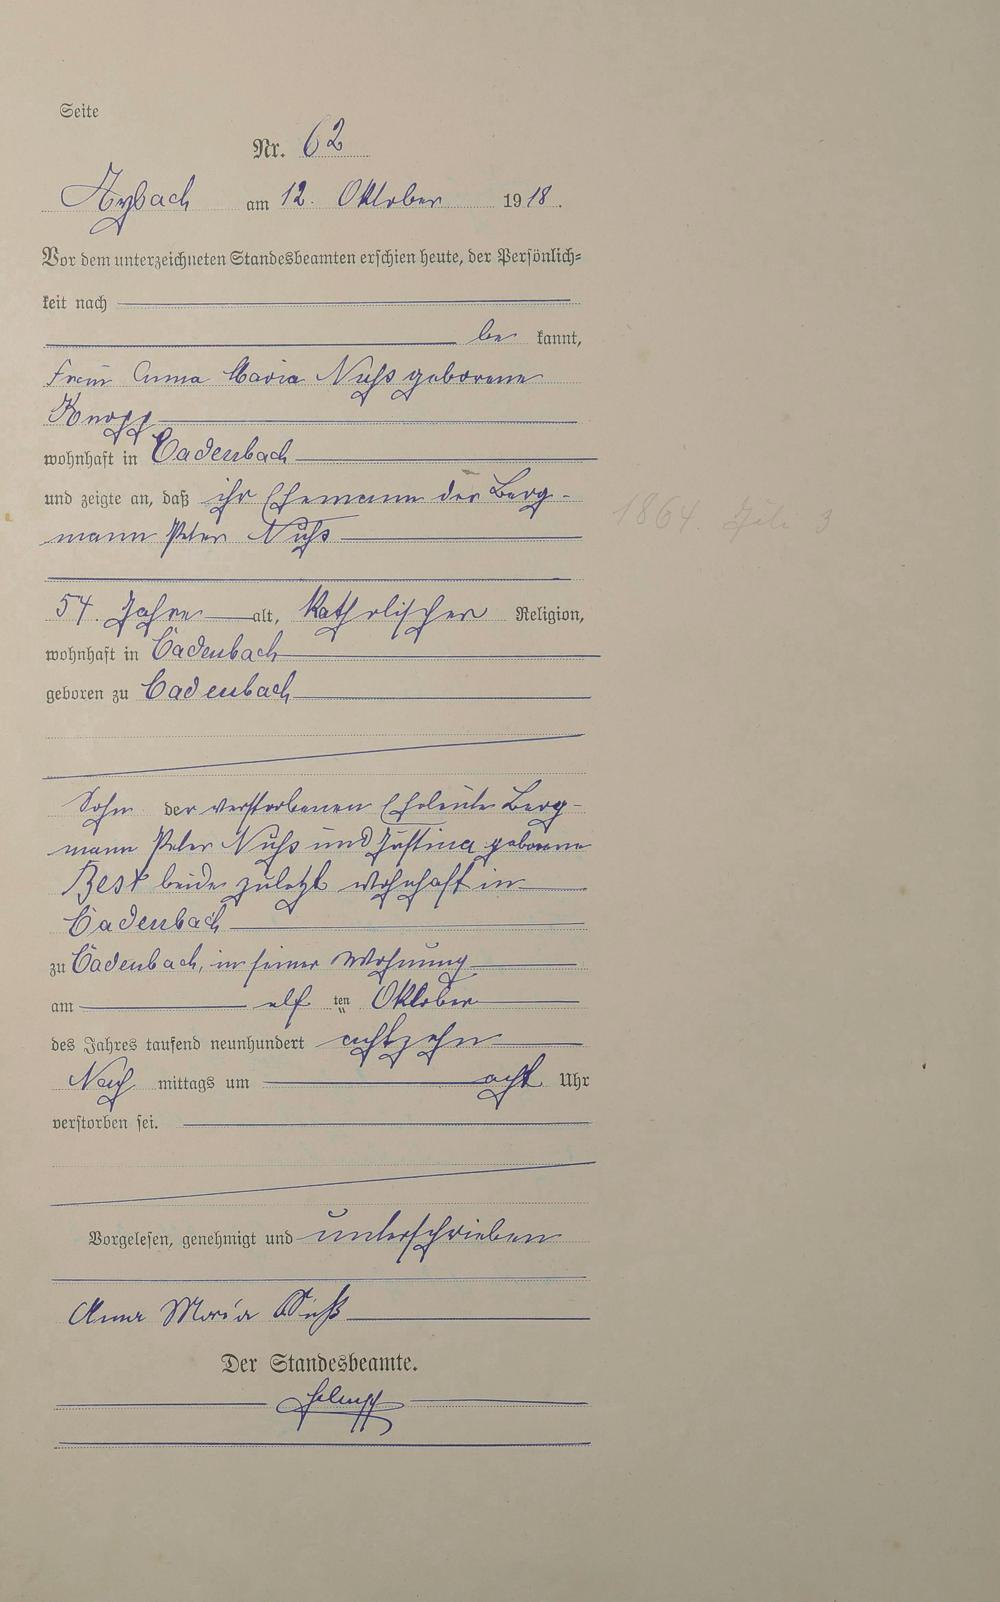 Seite
Nr. 62
Arzbach am 12. Oktober 1918.
Vor dem unterzeichneten Standesbeamten erschien heute, der Persönlich=
keit nach
be kannt,
Frau Anna Maria Nuhs geborene
Knopp
wohnhaft in Cadenbach
und zeigte an, daß ihr Ehemann der Berg-
mann Peter Nuhs
54. Jahre alt, katholischer Religion,
wohnhaft in Cadenbach
geboren zu Cadenbach
Sohn der verstorbenen Eheleute Berg-
mann Peter Nuhs und Justina geborene
Best beide zuletzt wohnhaft in
Cadenbach
zu Cadenbach, in seiner Wohnung
am elf ten Oktober
des Jahres tausend neunhundert achtzehn
Nach mittags um acht Uhr
verstorben sei.
Vorgelesen, genehmigt und unterschrieben
Anna Maria Nuß
Der Standesbeamte.
1864. Juli 3